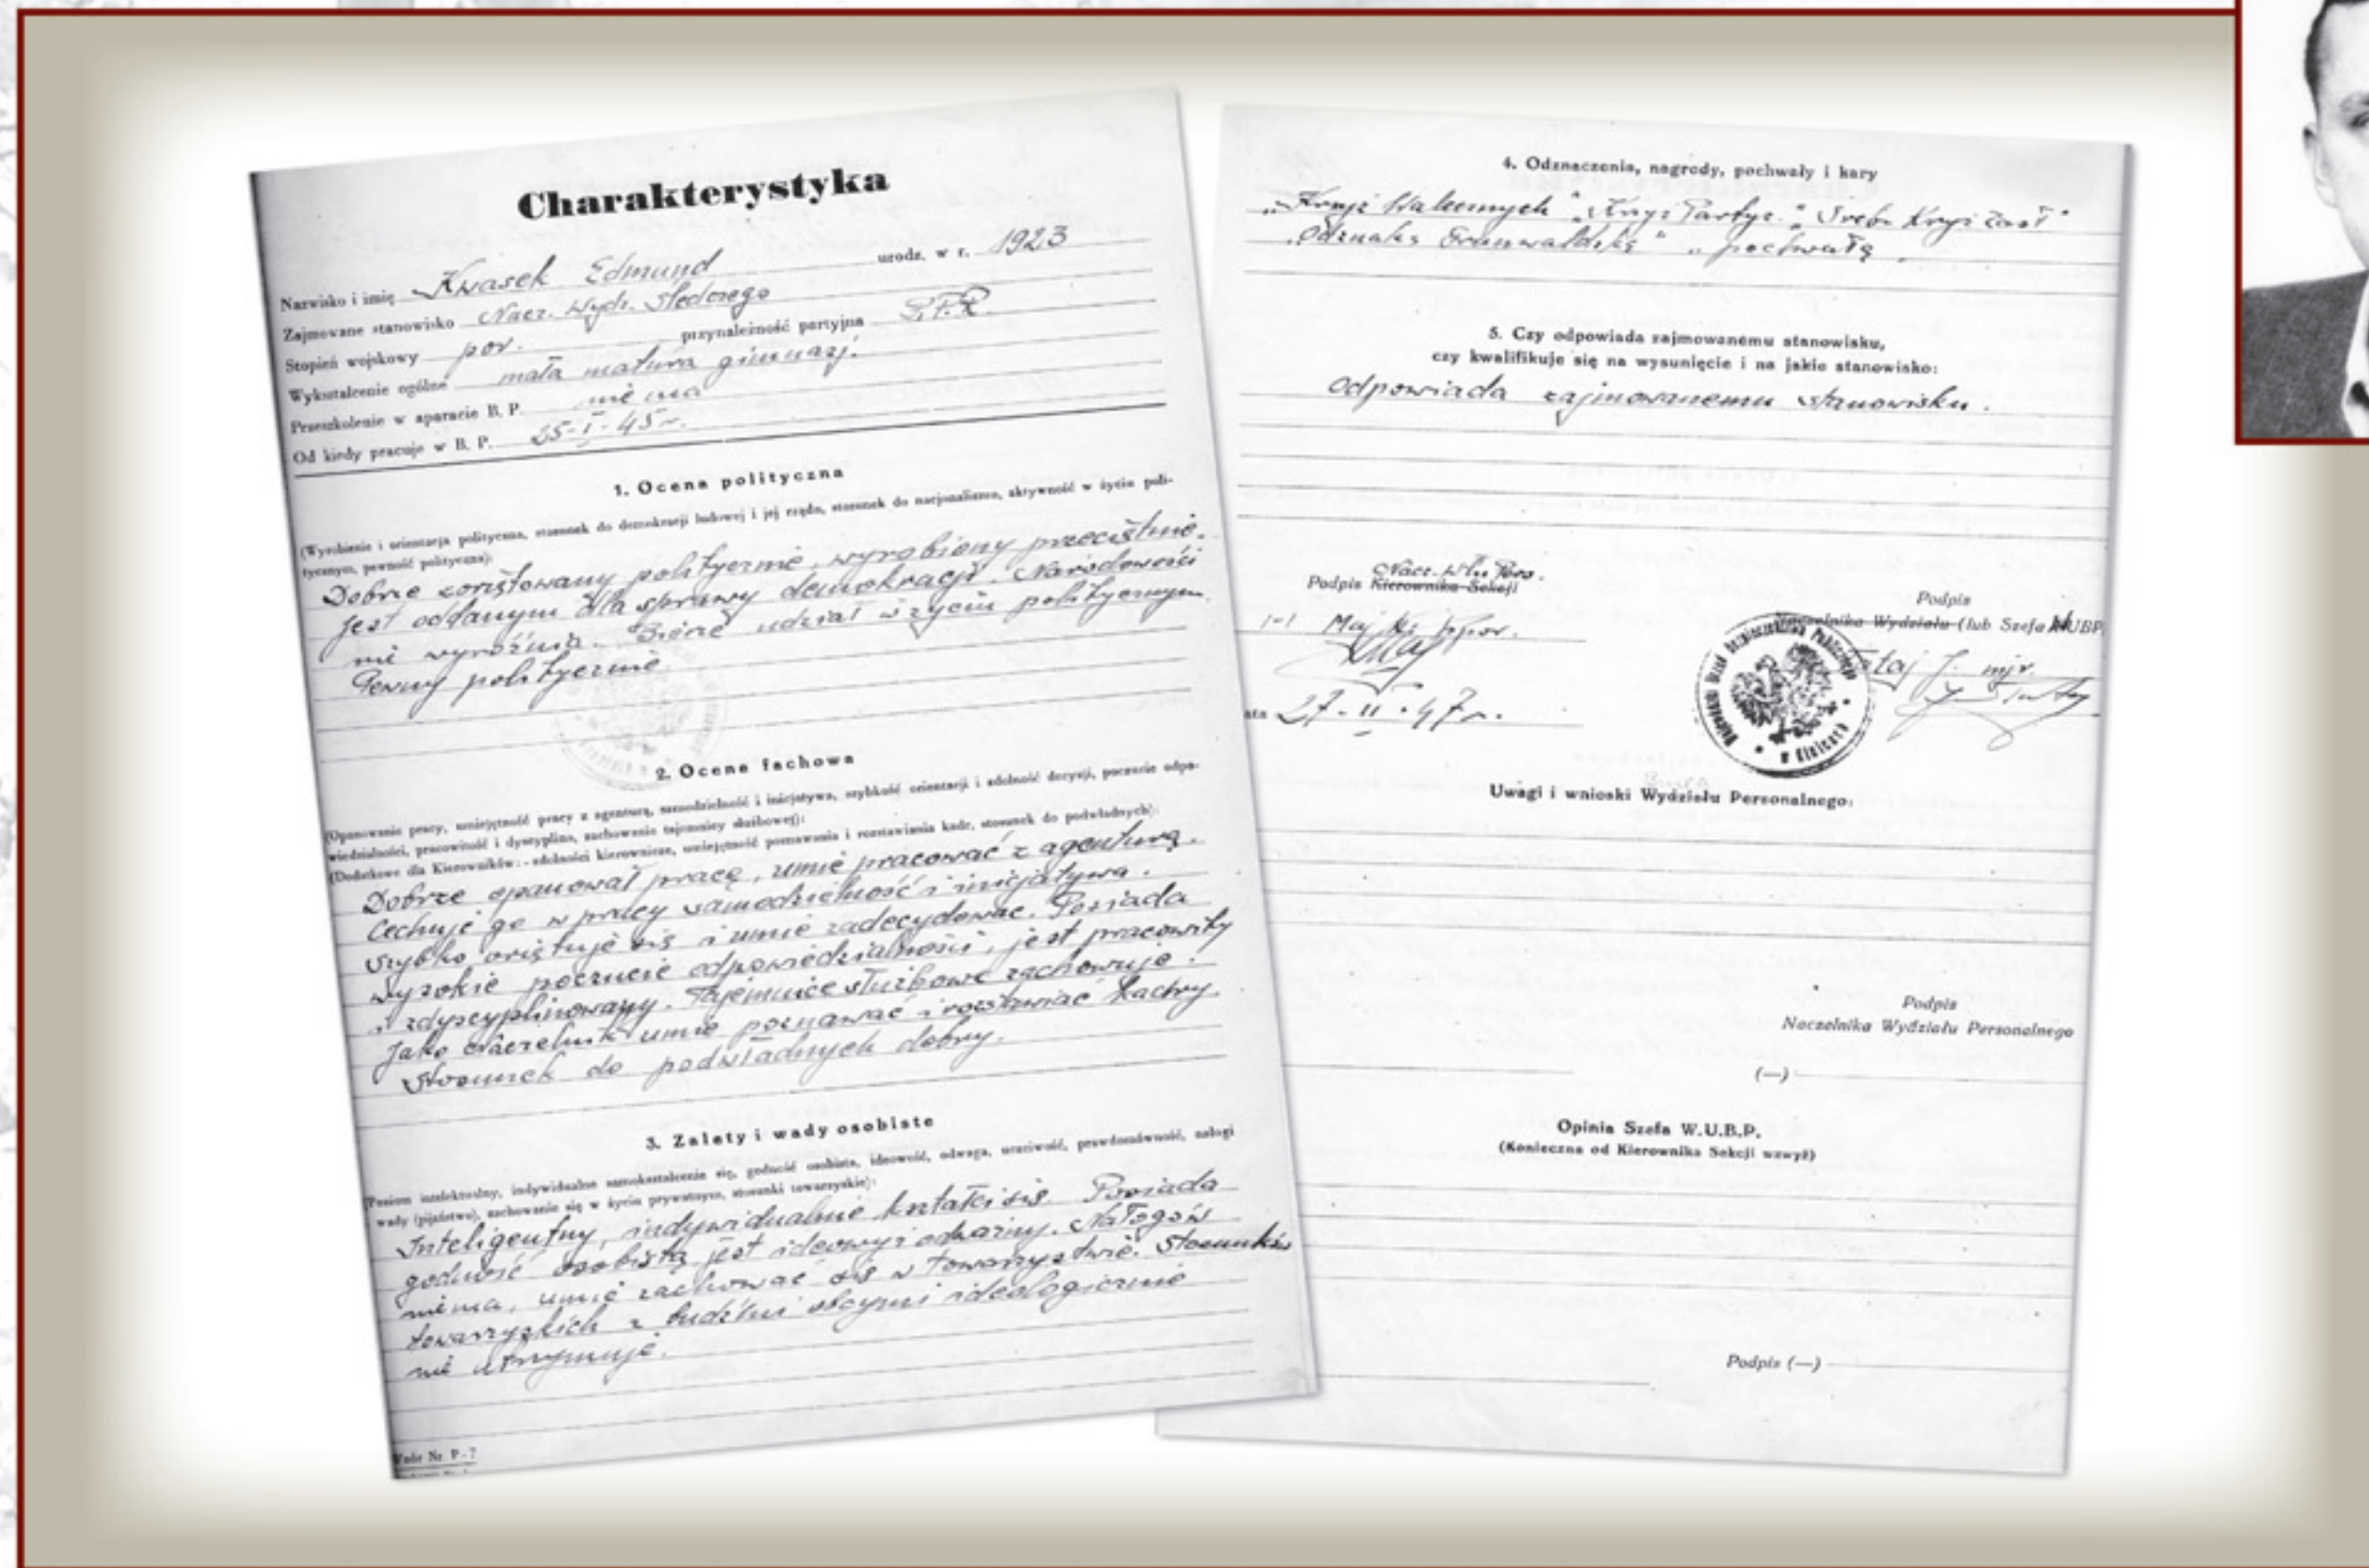 Charakterystyka
Nazwisko i imię Kwasek Edmund urodz. w r. 1923
Zajmowane stanowisko Nacz. Wydz. Śledczego
Stopień wojskowy por. przynależność partyjna P.P.R.
Wykształcenie ogólne mała matura gimnazj.
Przeszkolenie w aparacie B. P. nie ma
Od kiedy pracuje w B. P. 25-I-45r.
1. Ocena polityczna
(Wyrobienie i orientacja polityczna, stosunek do demokracji ludowej i jej rządu, stosunek do nacjonalizmu, aktywność w życiu poli-
tycznym, pewność polityczna):
Dobrze zorientowany politycznie, wyrobiony przeciętnie.
Jest oddanym dla sprawy demokracji. Narodowości
nie wyróżnia. Bierze udział w życiu politycznym.
Pewny politycznie
2. Ocena fachowa
(Opanowanie pracy, umiejętność pracy z agenturą, samodzielność i inicjatywa, szybkość orientacji i zdolność decyzji, poczucie odpo-
wiedzialności, pracowitość i dyscyplina, zachowanie tajemnicy służbowej):
(Dodatkowe dla Kierowników: - zdolności kierownicze, umiejętność poznawania i rozstawiania kadr, stosunek do podwładnych):
Dobrze opanował pracę, umie pracować z agenturą.
Cechuje go w pracy samodzielność i inicjatywa.
Szybko orientuje się i umie zadecydować. Posiada
wysokie poczucie odpowiedzialności, jest pracowity
i zdyscyplinowany. Tajemnice służbowe zachowuje.
Jako Naczelnik umie poznawać i rozstawiać kadry.
Stosunek do podwładnych dobry.
3. Zalety i wady osobiste
(Poziom intelektualny, indywidualne samokształcenie się, godność osobista, ideowość, odwaga, uczciwość, prawdomówność, nałogi
wady (pijaństwo), zachowanie się w życiu prywatnym, stosunki towarzyskie):
Inteligentny, indywidualnie kształci się. Posiada
godność osobistą jest ideowy i odważny. Nałogów
niema, umie zachować się w towarzystwie. Stosunków
towarzyskich z ludźmi obcymi ideologicznie
nie utrzymuje.
Wzór Nr P-7
4. Odznaczenia, nagrody, pochwały i kary
„Krzyż Walecznych" „Krzyż Partyz." „Srebr. Krzyż Zasł"
„Odznakę Grunwaldzką" „pochwałą
5. Czy odpowiada zajmowanemu stanowisku,
czy kwalifikuje się na wysunięcie i na jakie stanowisko:
Odpowiada zajmowanemu stanowisku.
Nacz. W-łu Pers.
Podpis Kierownika Sekcji
Podpis
Naczelnika Wydziału (lub Szefa WUBP
/-/ Maj ppor.
Tataj J. mjr.
27-II-47r.
Wojewódzki Urząd Bezpieczeństwa Publicznego
w Kielcach
Uwagi i wnioski Wydziału Personalnego:
Podpis
Naczelnika Wydziału Personalnego
(—)
Opinia Szefa W.U.B.P.
(Konieczna od Kierownika Sekcji wzwyż)
Podpis (—)